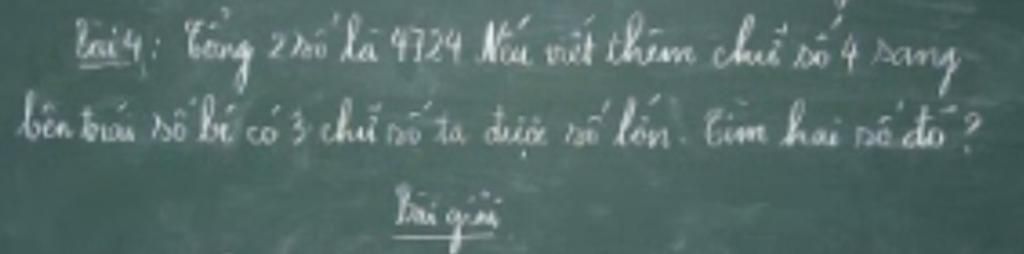 Bài 4: Tổng 2 số là 4724 Nếu viết thêm chữ số 4 sang
bên trái số bé có 3 chữ số ta được số lớn. Tìm hai số đó?
Bài giải